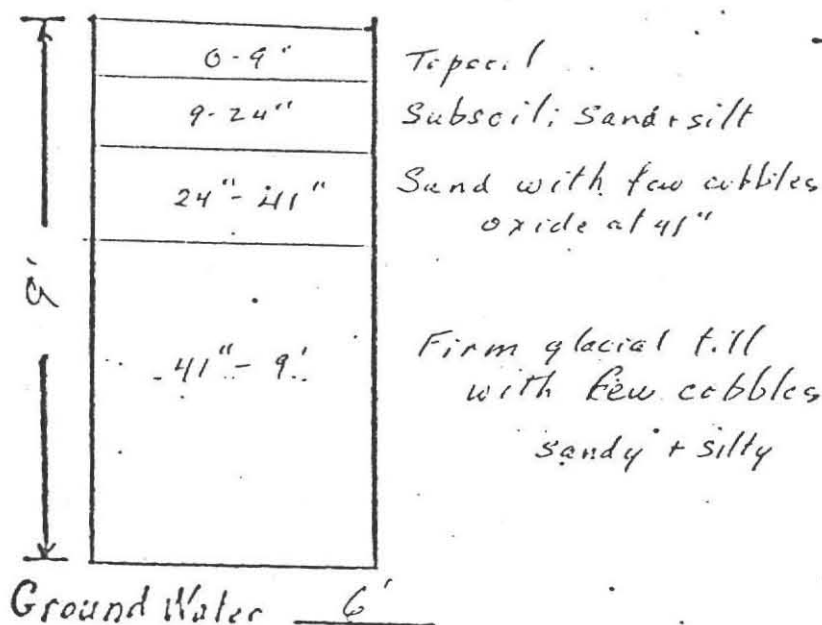 0-9" Topsoil
9-24" Subsoil; Sand + silt
24"-41" Sand with few cobbles
oxide at 41"
9'
41"-9' Firm glacial till
with few cobbles
sandy + silty
Ground Water 6'